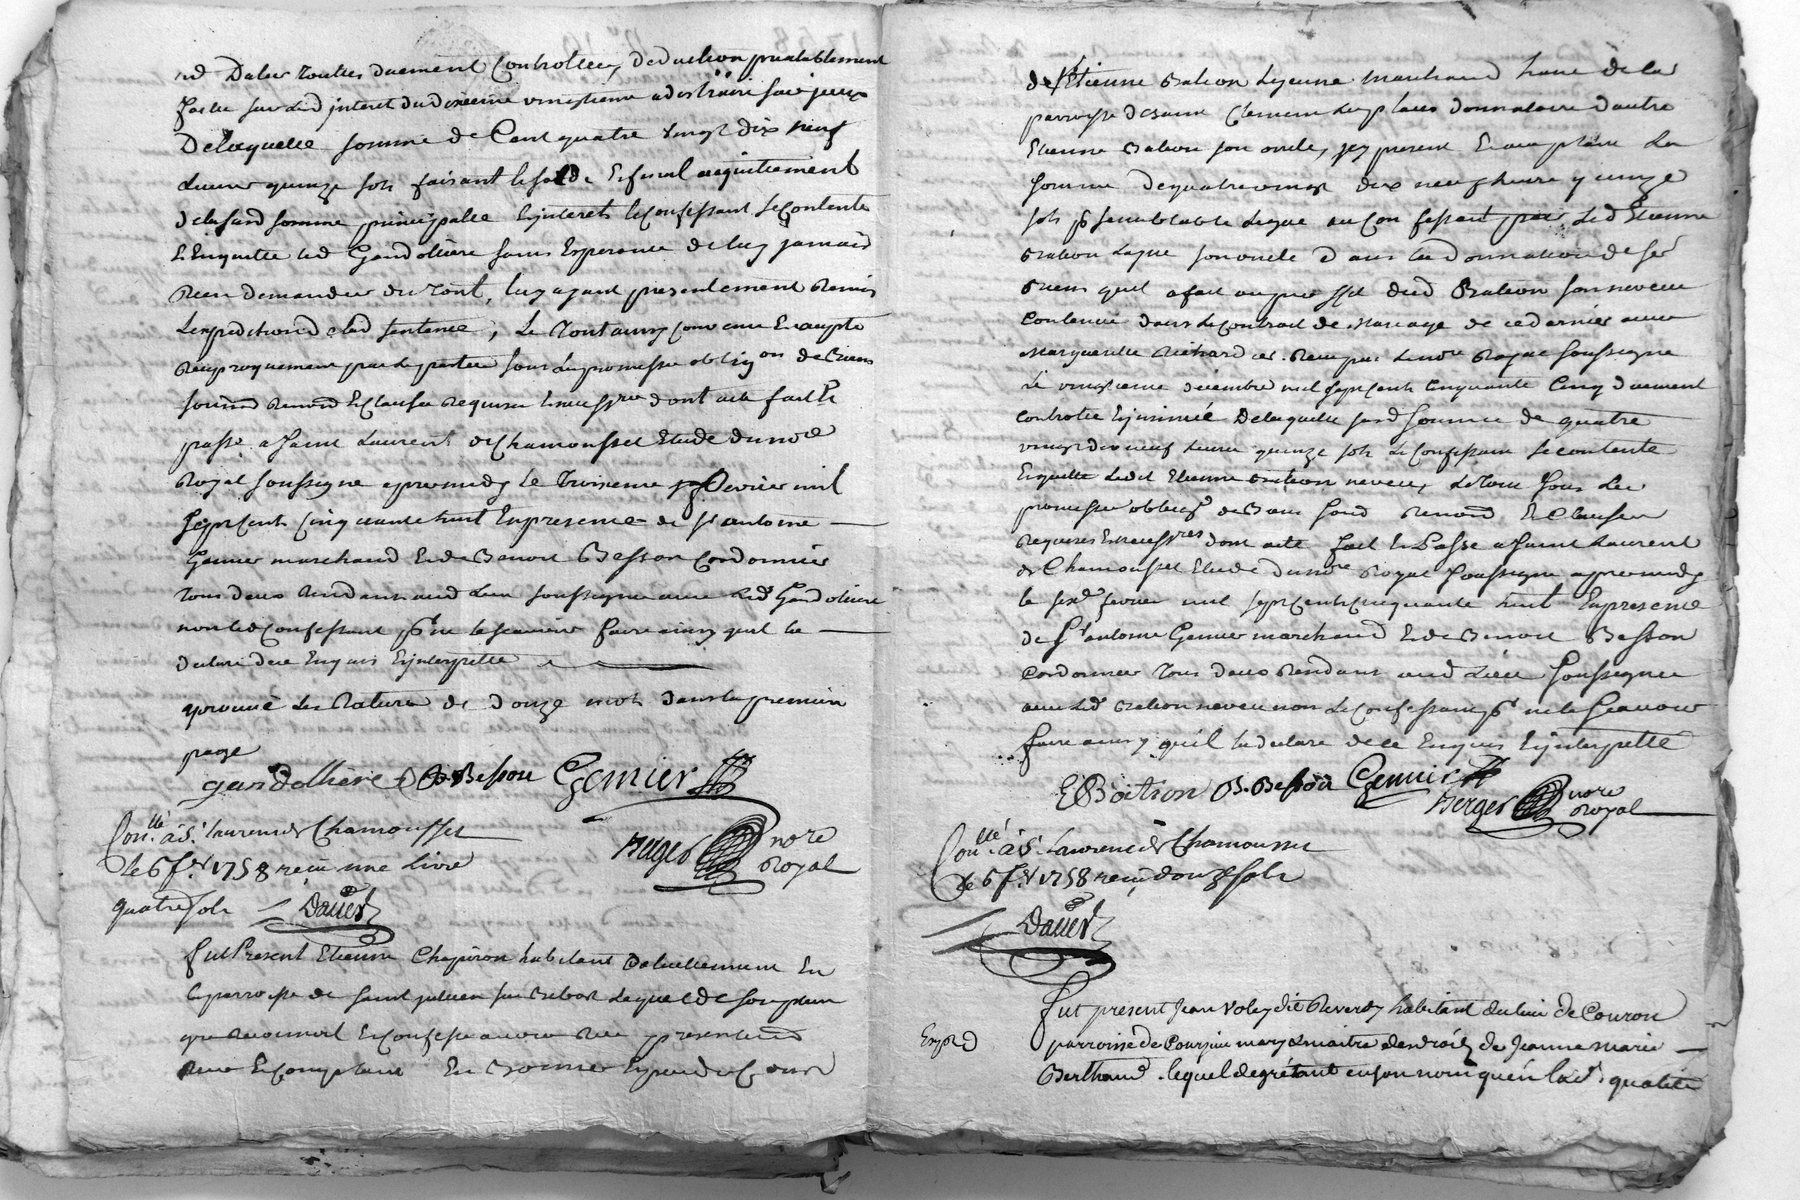 toutes duement Controllées, deduction prealablement
faitte sur led interet du dixieme vingtieme
De laquelle somme de Cent quatre vingt dix neuf
Livres quinze sols faisant le solde Et final acquittement
de la ste somme principalle Et interets le confessant se contente
Et en quitte led Gandolliere sans Esperance de luy jamais
Rien demander du tout, luy ayant presentement Remis
L'expedition de lad sentence, Le tout ainsy convenu Et accepté
Reciproquement par les parties sous les promesses oblig.on de Biens
soumd Renond Et clauses Requises dont acte fait Et
passé a Saint Laurent de Chamousset Etude du no.re
Royal soussigné apresmidy le Troisieme fevrier mil
sept Cents Cinquante huit En presence de sr antoine
Genier marchand Et de Benoit Besson Cordonnier
tous deux Residants aud Lieu soussignes avec led Gandoliere
non led Confessant pr ne le scavoir faire ainsy quil la
declaré de ce Enquis Et interpellé
aprouvé les Ratures de douze mots dans la premiere
page
gandolliere B Besson Genier
Con.llé à St. Laurent de Chamousset
Le 6 f.er 1758 reçu une livre
Berger nore
Royal
quatre sols Daver
fut Present Etienne Chapiron habitant actuellement En
la parroisse de Saint julien sur Bibost Lequel de son plein
gré Reconnoit Et confesse avoir Reçu presentement
de Etienne Bation Lejeune marchand
parroisse de Saint Clement les places donnataire d'autre
Etienne Bation son oncle, icy present Et acceptant La
somme de quatre vingt dix neuf livres quinze
sols pr semblable Legué au Confessant par led Etienne
Bation Layné son oncle Dans la donnation de ses
Biens quil a fait au proffit dud Bation son neveu
Contenue dans le contrat de Mariage de ce dernier avec
Marguerite Reçu par le no.re Royal soussigné
Le vingtieme décembre mil sept cents cinquante cinq duement
controllé Et insinué De laquelle susd somme de quatre
vingt dix neuf livres quinze sols le confessant se contente
En quitte ledit Etienne Bation neveu, Le tout sous les
promesses oblig.s de Biens soumd Renond Et clauses
Requises dont acte fait Et Passé a Saint Laurent
de Chamousset Etude du no.re Royal soussigné apresmidy
le six.e fevrier mil sept cents cinquante huit En presence
de Sr antoine Genier marchand Et de Benoit Besson
Cordonnier tous deux Residants aud Lieu soussignes
avec led Bation neveu non le confessant pr ne le scavoir
faire ainsy quil la declaré de ce Enquis Et interpellé
E Bation B. Besson Genier
Berger nore
Royal
Con.llé à St. Laurent de Chamousset
Le 6 f.er 1758 reçu douze sols
Daver
fut present Jean dit habitant du lieu de Couron
Exp.d parroisse de mary Et maitre des droits de Jeanne Marie
Berthaud. lequel degré tant en son nom qu'en lad. qualité